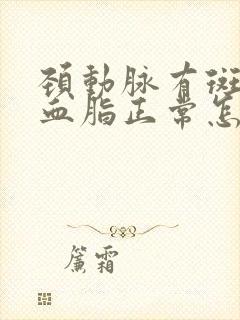 頸動脉有斑
血脂正常怎
簾霜